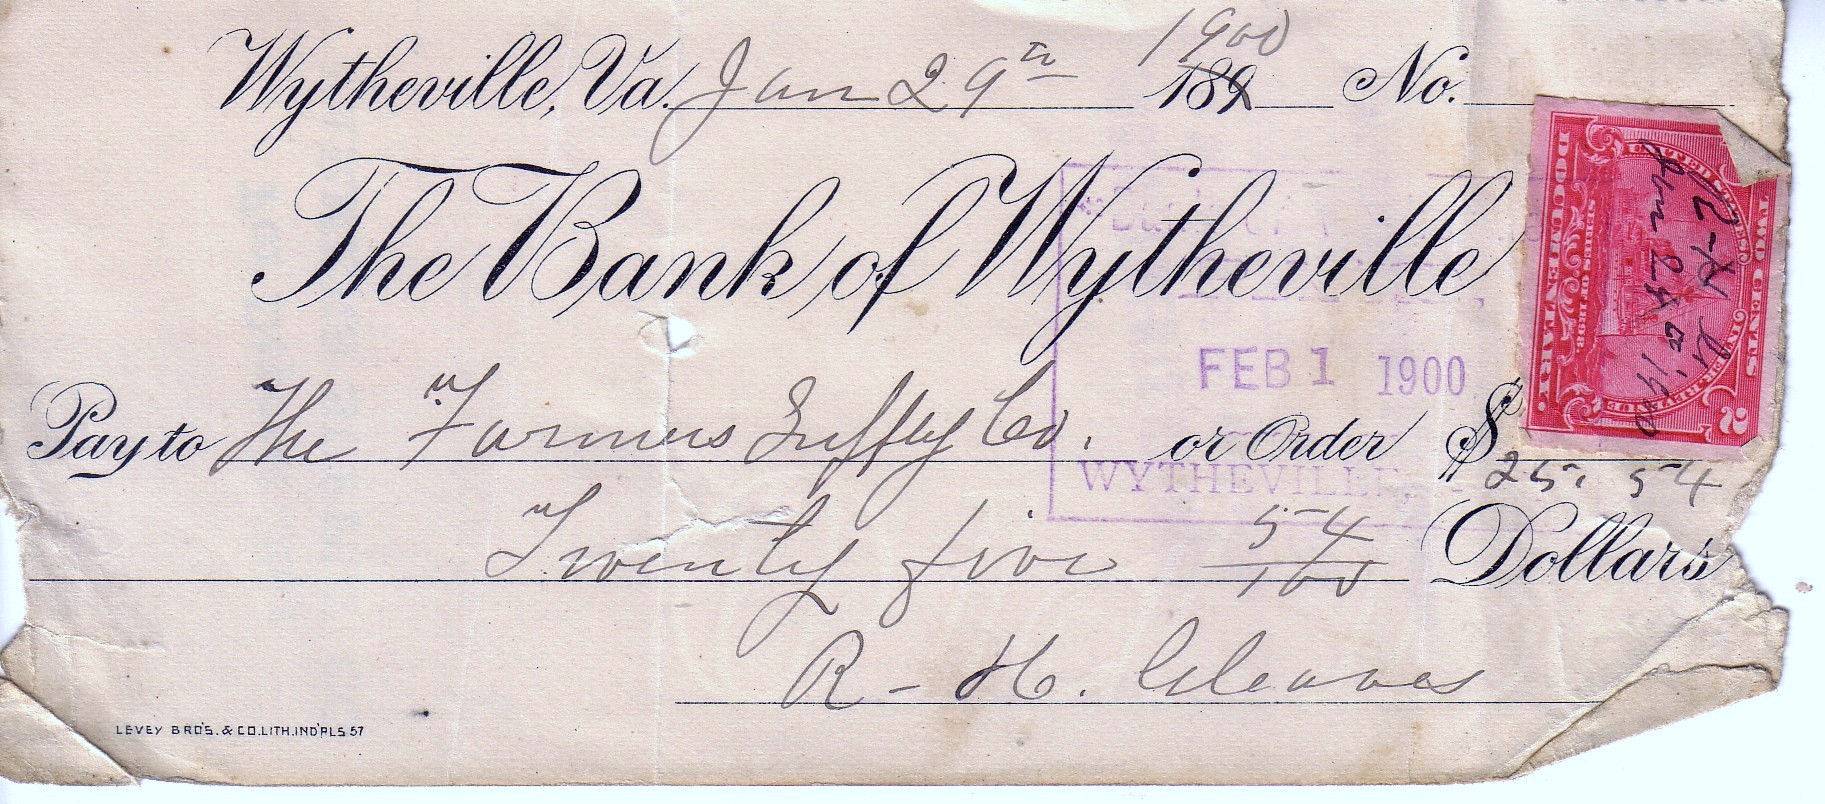 Wytheville, Va. Jan 29th 1900 189 No.
The Bank of Wytheville
FEB 1 1900
Pay to The Farmers Supply Co. or Order $ 25.54
WYTHEVILLE,
Twenty five 54/100 Dollars
R-H. Cleaves
LEVEY BRO'S. & CO. LITH. IND'PLS 57
UNITED STATES
TWO CENTS
INT. REVENUE
SERIES OF 1898
DOCUMENTARY
2
R-H.
Jan 29 1900